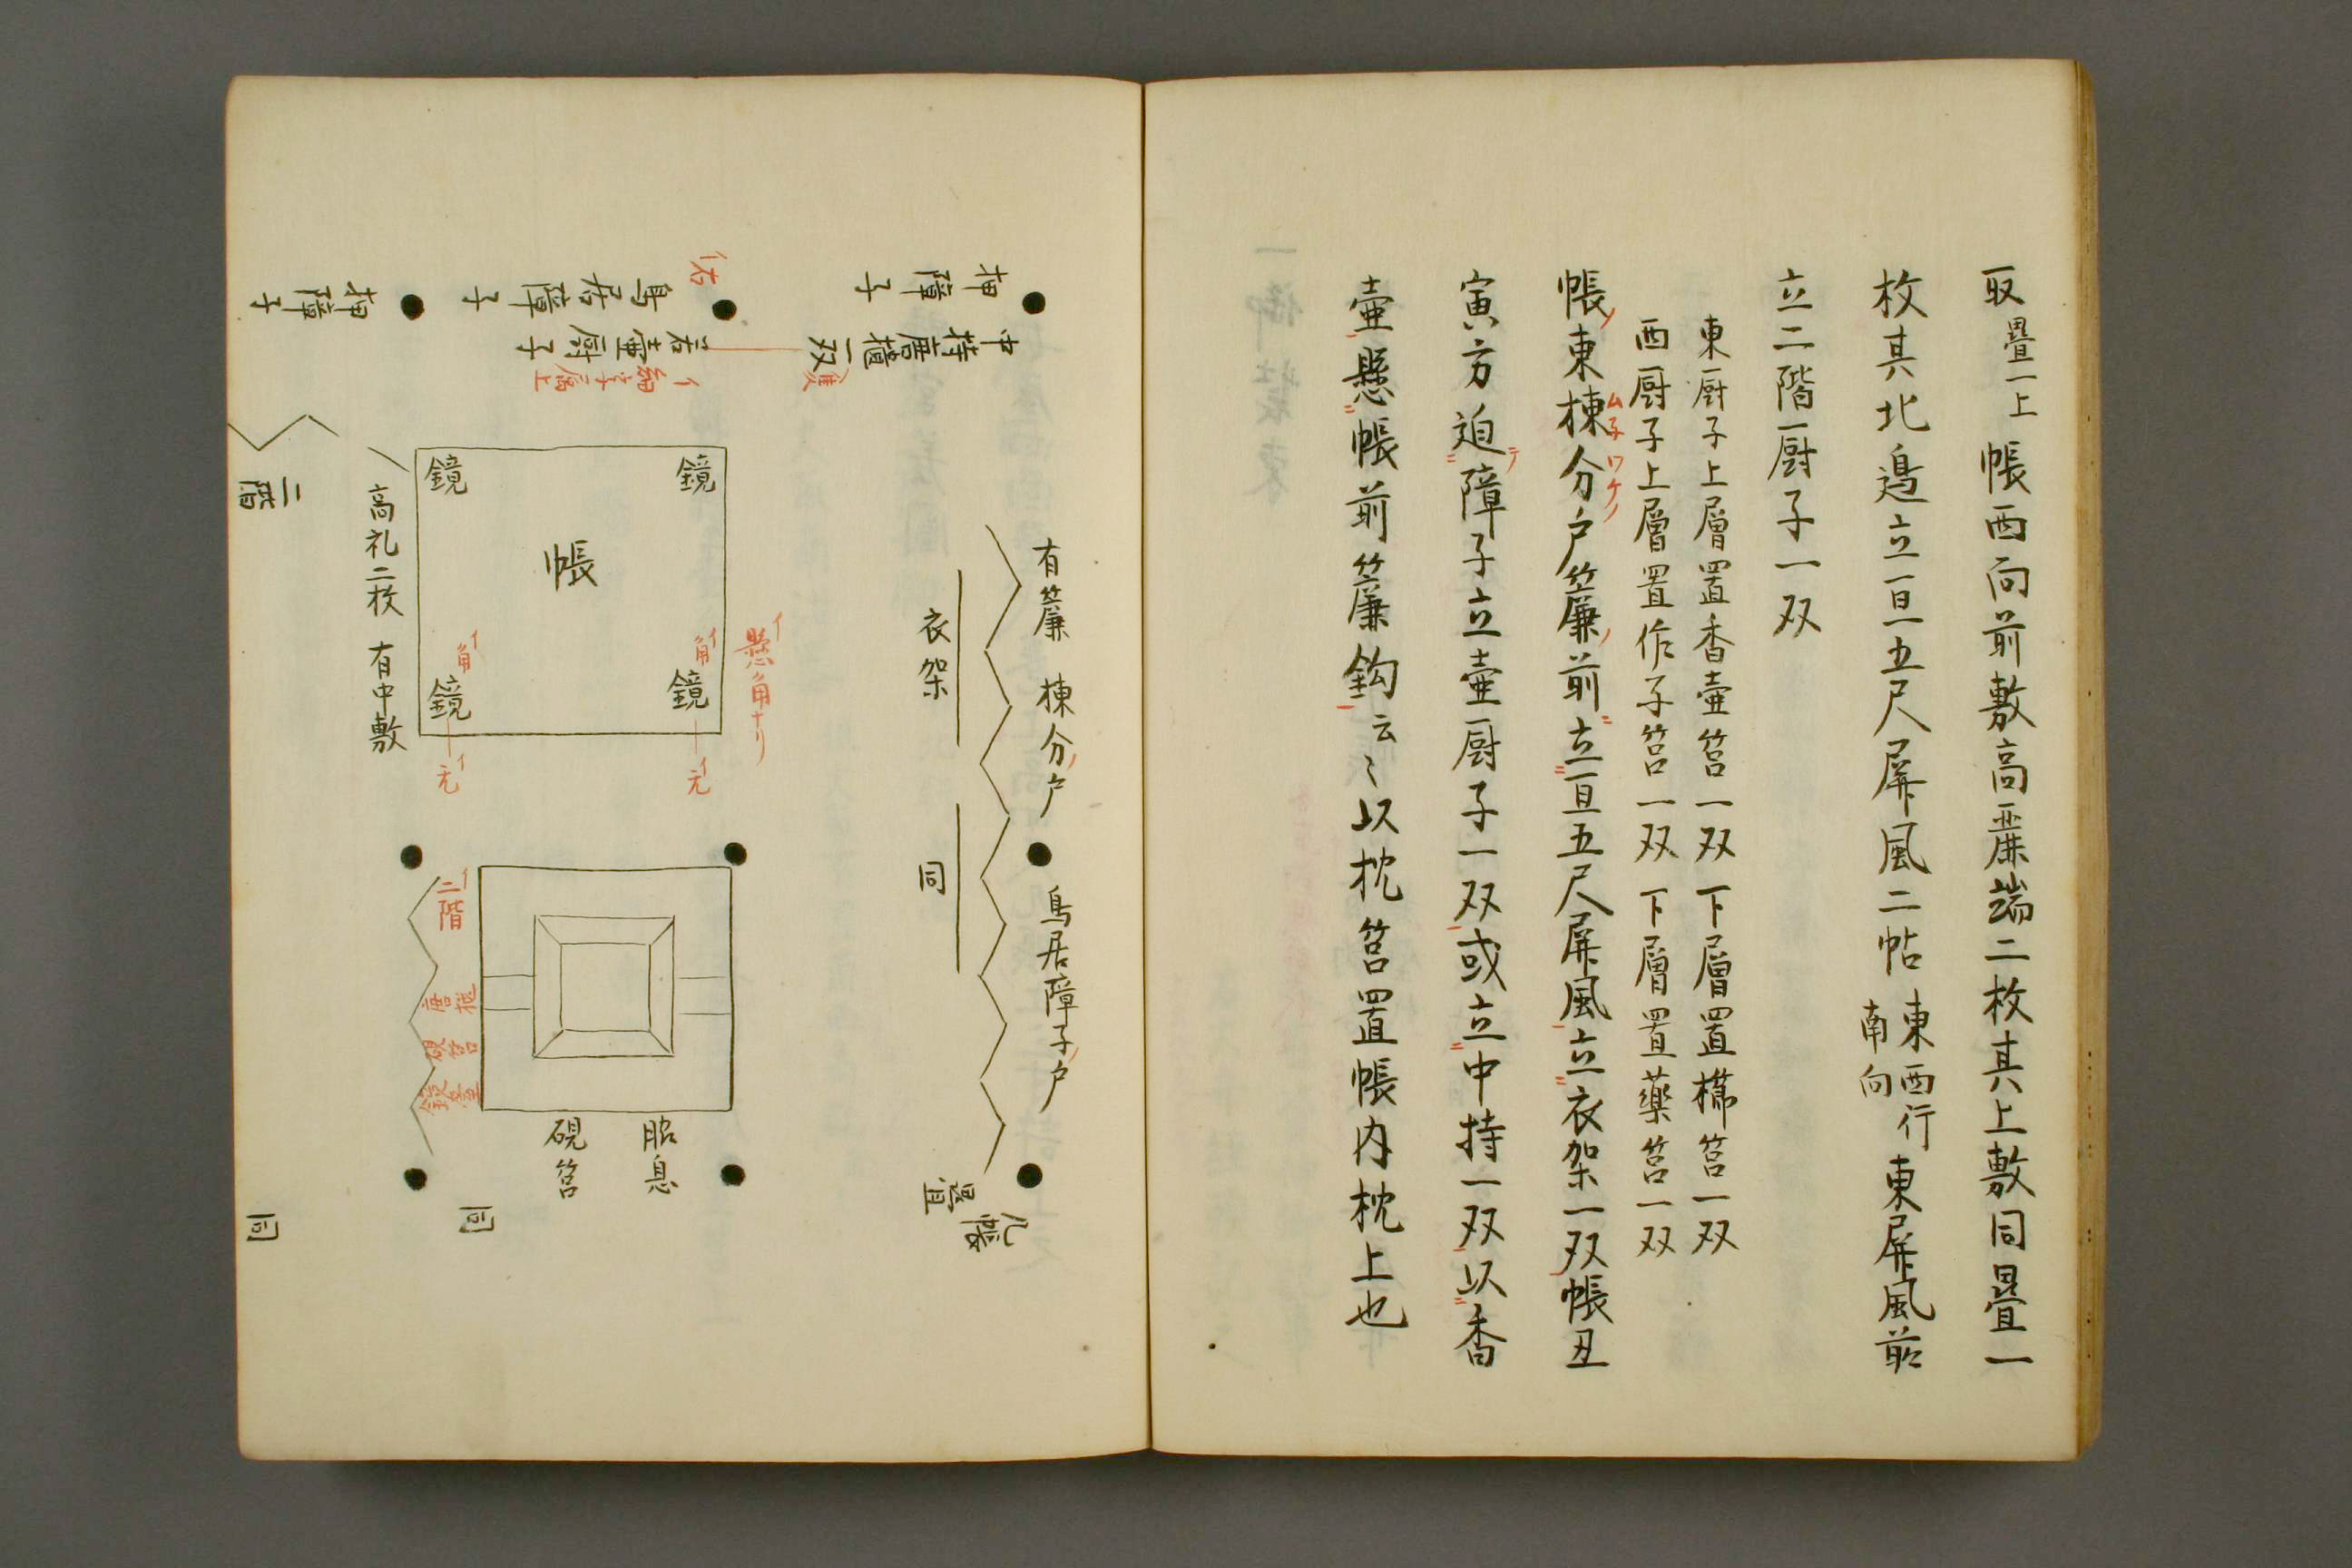 取畳一上帳西向前敷高麗端二枚其上敷同畳一
枚其北邉立五尺屏風二帖東西行
南向
東屏風前
立二階厨子一双
東厨子上層置香壷筥一双下層置櫛筥一双
西厨子上層置作子筥一双下層置藥筥一双
帳東棟分戸簾前立五尺屏風立衣架一双帳丑
ムネワケノ
寅方迫障子立壷厨子一双或立中持一双以香
壷懸帳前簾鈎云〻以枕筥置帳内枕上也
有簾 棟分戸 鳥居障子戸
几帳
畳
衣架
同
押障子
中持唐櫃一双
イ右
鳥居障子
右壷厨子
押障子
イ懸角ナリ
鏡
イ角
鏡
イ元
帳
鏡
イ角
鏡
イ元
高礼二枚 有中敷
二階
硯筥
イ二階
唐匣
硯筥
同
同